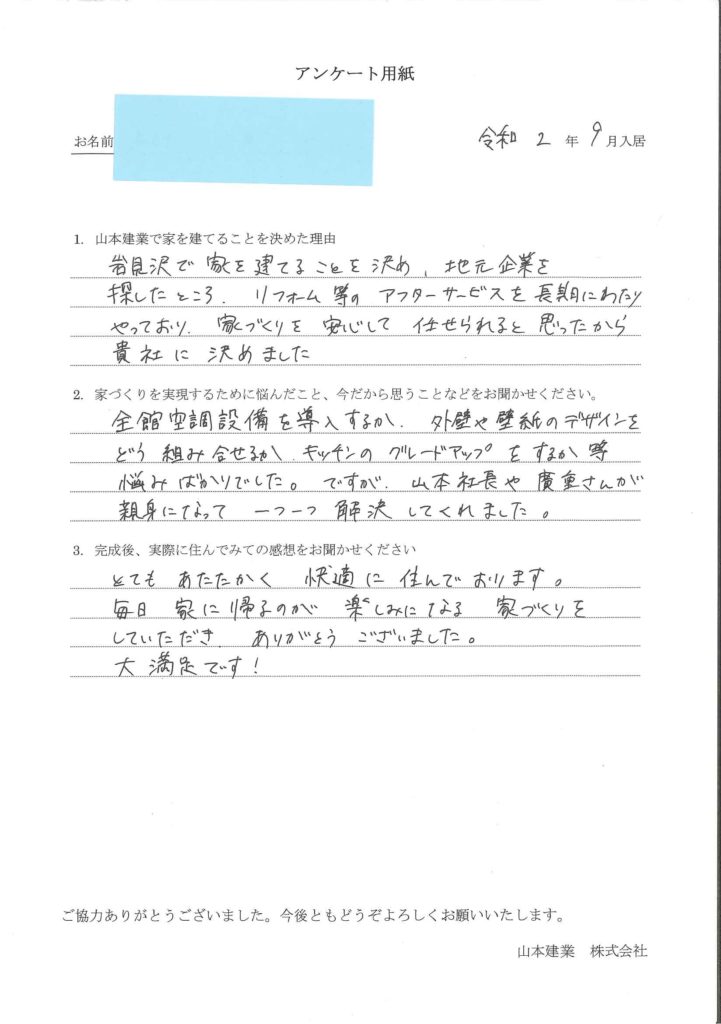 アンケート用紙
お名前
令和 2 年 9 月入居
1. 山本建業で家を建てることを決めた理由
岩見沢で 家を建てることを決め、地元企業を
探したところ、リフォーム等の アフターサービスを長期にわたり
やっており、家づくりを 安心して 任せられると 思ったから
貴社に 決めました
2. 家づくりを実現するために悩んだこと、今だから思うことなどをお聞かせください。
全館空調設備を導入するか、外壁や壁紙のデザインを
どう 組み合せるか、キッチンの グレードアップをするか 等
悩みばかりでした。ですが、山本社長や 廣重さんが
親身になって 一つ一つ 解決してくれました。
3. 完成後、実際に住んでみての感想をお聞かせください
とても あたたかく 快適に 住んでおります。
毎日 家に帰るのが 楽しみになる 家づくりを
していただき、ありがとう ございました。
大満足です!
ご協力ありがとうございました。今後ともどうぞよろしくお願いいたします。
山本建業 株式会社